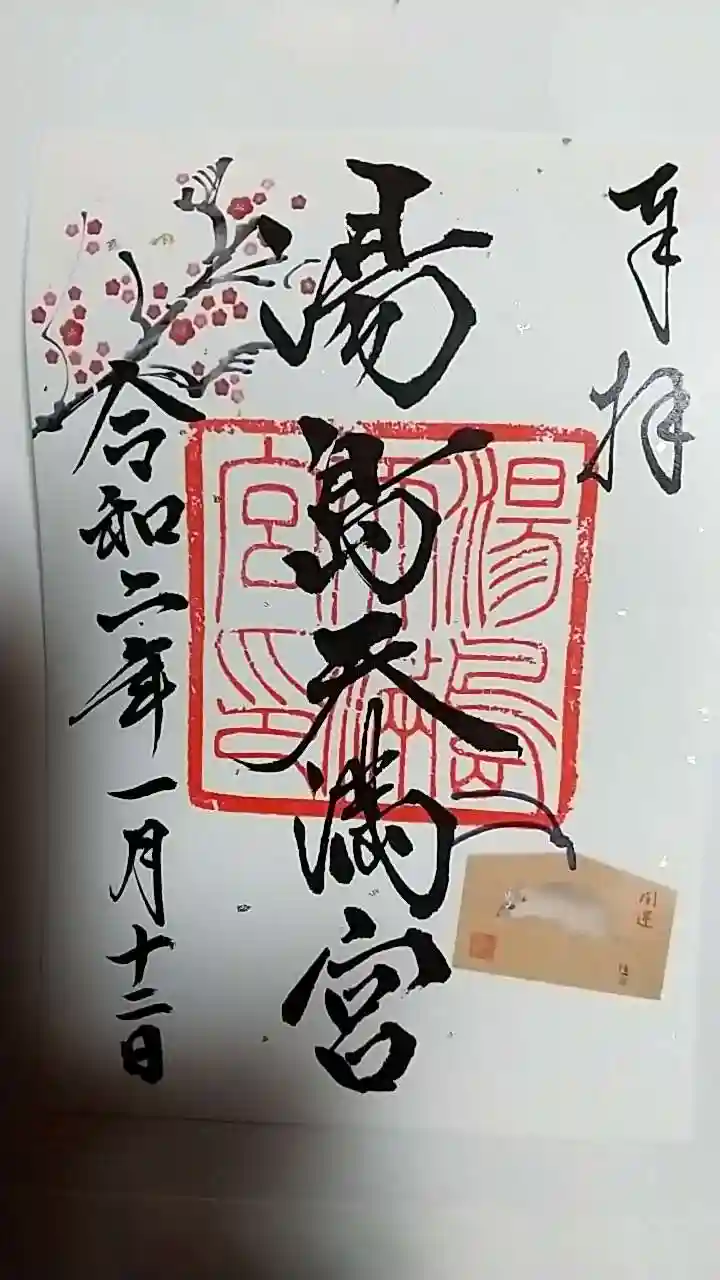 奉拝
湯島天満宮
湯島
天満
宮印
開運
令和二年一月十二日